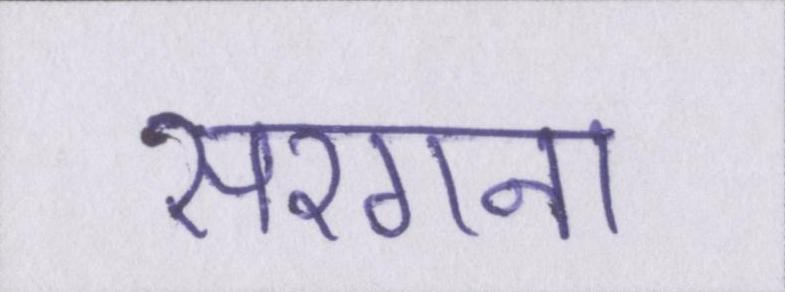 सरगना